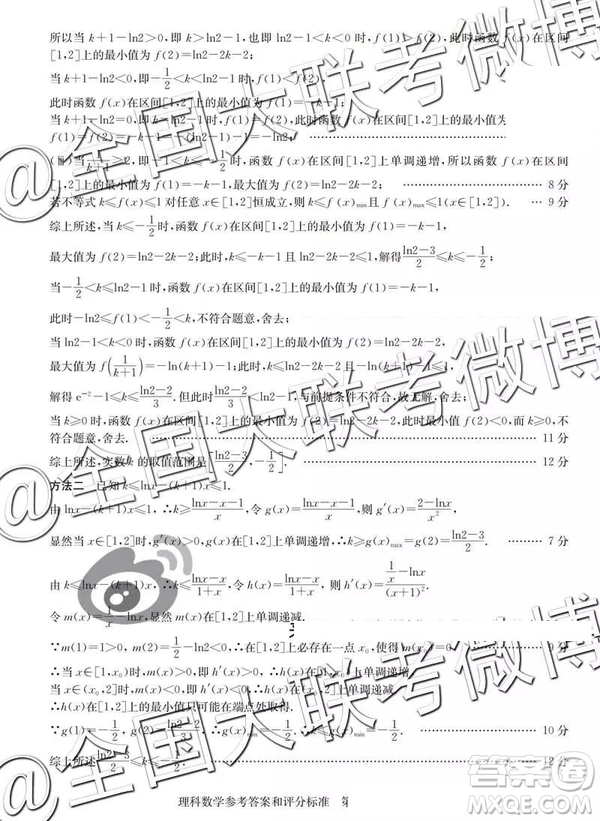 所以当 k+1-ln2>0,即 k>ln2-1,也即 ln2-1<k<0 时,f(1)>f(2),此时函数 f(x)在区间
[1,2]上的最小值为 f(2)=ln2-2k-2;
当 k+1-ln2<0,即-1/2<k<ln2-1 时,f(1)<f(2),
此时函数 f(x)在区间[1,2]上的最小值为 f(1)=-k-1;
当 k+1-ln2=0,即 k=ln2-1 时,f(1)=f(2),此时函数 f(x)在区间[1,2]上的最小值为
f(1)=f(2)=-k-1=-(ln2-1)-1=-ln2;
≥2,即 时,函数 f(x)在区间[1,2]上单调递增,所以函数 f(x)在区间
[1,2]上的最小值为 f(1)=-k-1,最大值为 f(2)=ln2-2k-2; 8 分
若不等式 k≤f(x)≤1 对任意 x∈[1,2]恒成立,则 k≤f(x)min且 f(x)max≤1(x∈[1,2]). … 9 分
综上所述,当 k≤-1/2时,函数 f(x)在区间[1,2]上的最小值为 f(1)=-k-1,
最大值为 f(2)=ln2-2k-2;此时,k≤-k-1 且 ln2-2k-2≤1,解得(ln2-3)/2≤k≤-1/2;
当-1/2<k≤ln2-1 时,函数 f(x)在区间[1,2]上的最小值为 f(1)=-k-1,
此时-ln2≤f(1)<-1/2,不符合题意,舍去;
当 ln2-1<k<0 时,函数 f(x)在区间[1,2]上的最小值为 f(2)=ln2-2k-2,
最大值为 f(1/(k+1))=-ln(k+1)-1;此时,k≤ln2-2k-2 且-ln(k+1)-1≤1,
解得 e⁻²-1≤k≤(ln2-2)/3.但此时 与前提条件不符合,故无解,舍去;
当 k≥0 时,函数 f(x)在区间[1,2]上的最小值为 f(2)=ln2-2k-2,此时最小值 f(2)<0,而 k≥0,不
符合题意,舍去. 11 分
综上所述,实数 k 的取值范围是[(ln2-3)/2,-1/2]. 12 分
方法二 已知 k≤lnx-(k+1)x≤1.
由 lnx-(k+1)x≤1,∴k≥(lnx-x-1)/x,令 g(x)=(lnx-x-1)/x,则 g′(x)=(2-lnx)/x²,
显然当 x∈[1,2]时,g′(x)>0,g(x)在[1,2]上单调递增,∴k≥g(x)max=g(2)=(ln2-3)/2. 7 分
由 k≤lnx-(k+1)x,∴k≤(lnx-x)/(x+1),令 h(x)=(lnx-x)/(x+1),则 h′(x)=(1/x-lnx)/(x+1)².
令 m(x)=1/x-lnx,显然 m(x)在[1,2]上单调递减.
∵m(1)=1>0,m(2)=1/2-ln2<0,∴在[1,2]上必存在一点 x₀,使得 m(x₀)=0. 9 分
∴当 x∈[1,x₀)时,m(x)>0,即 h′(x)>0,∴h(x)在[1,x₀)上单调递增,
当 x∈(x₀,2]时,m(x)<0,即 h′(x)<0,∴h(x)在(x₀,2]上单调递减.
∴h(x)在[1,2]上的最小值只可能在端点处取得.
10 分
综上所述(ln2-3)/2≤k≤-1/2. 12 分
理科数学参考答案和评分标准
@全国大联考微博
@全国大联考微博
@全国大联考微博
答案圈
MXQE.COM